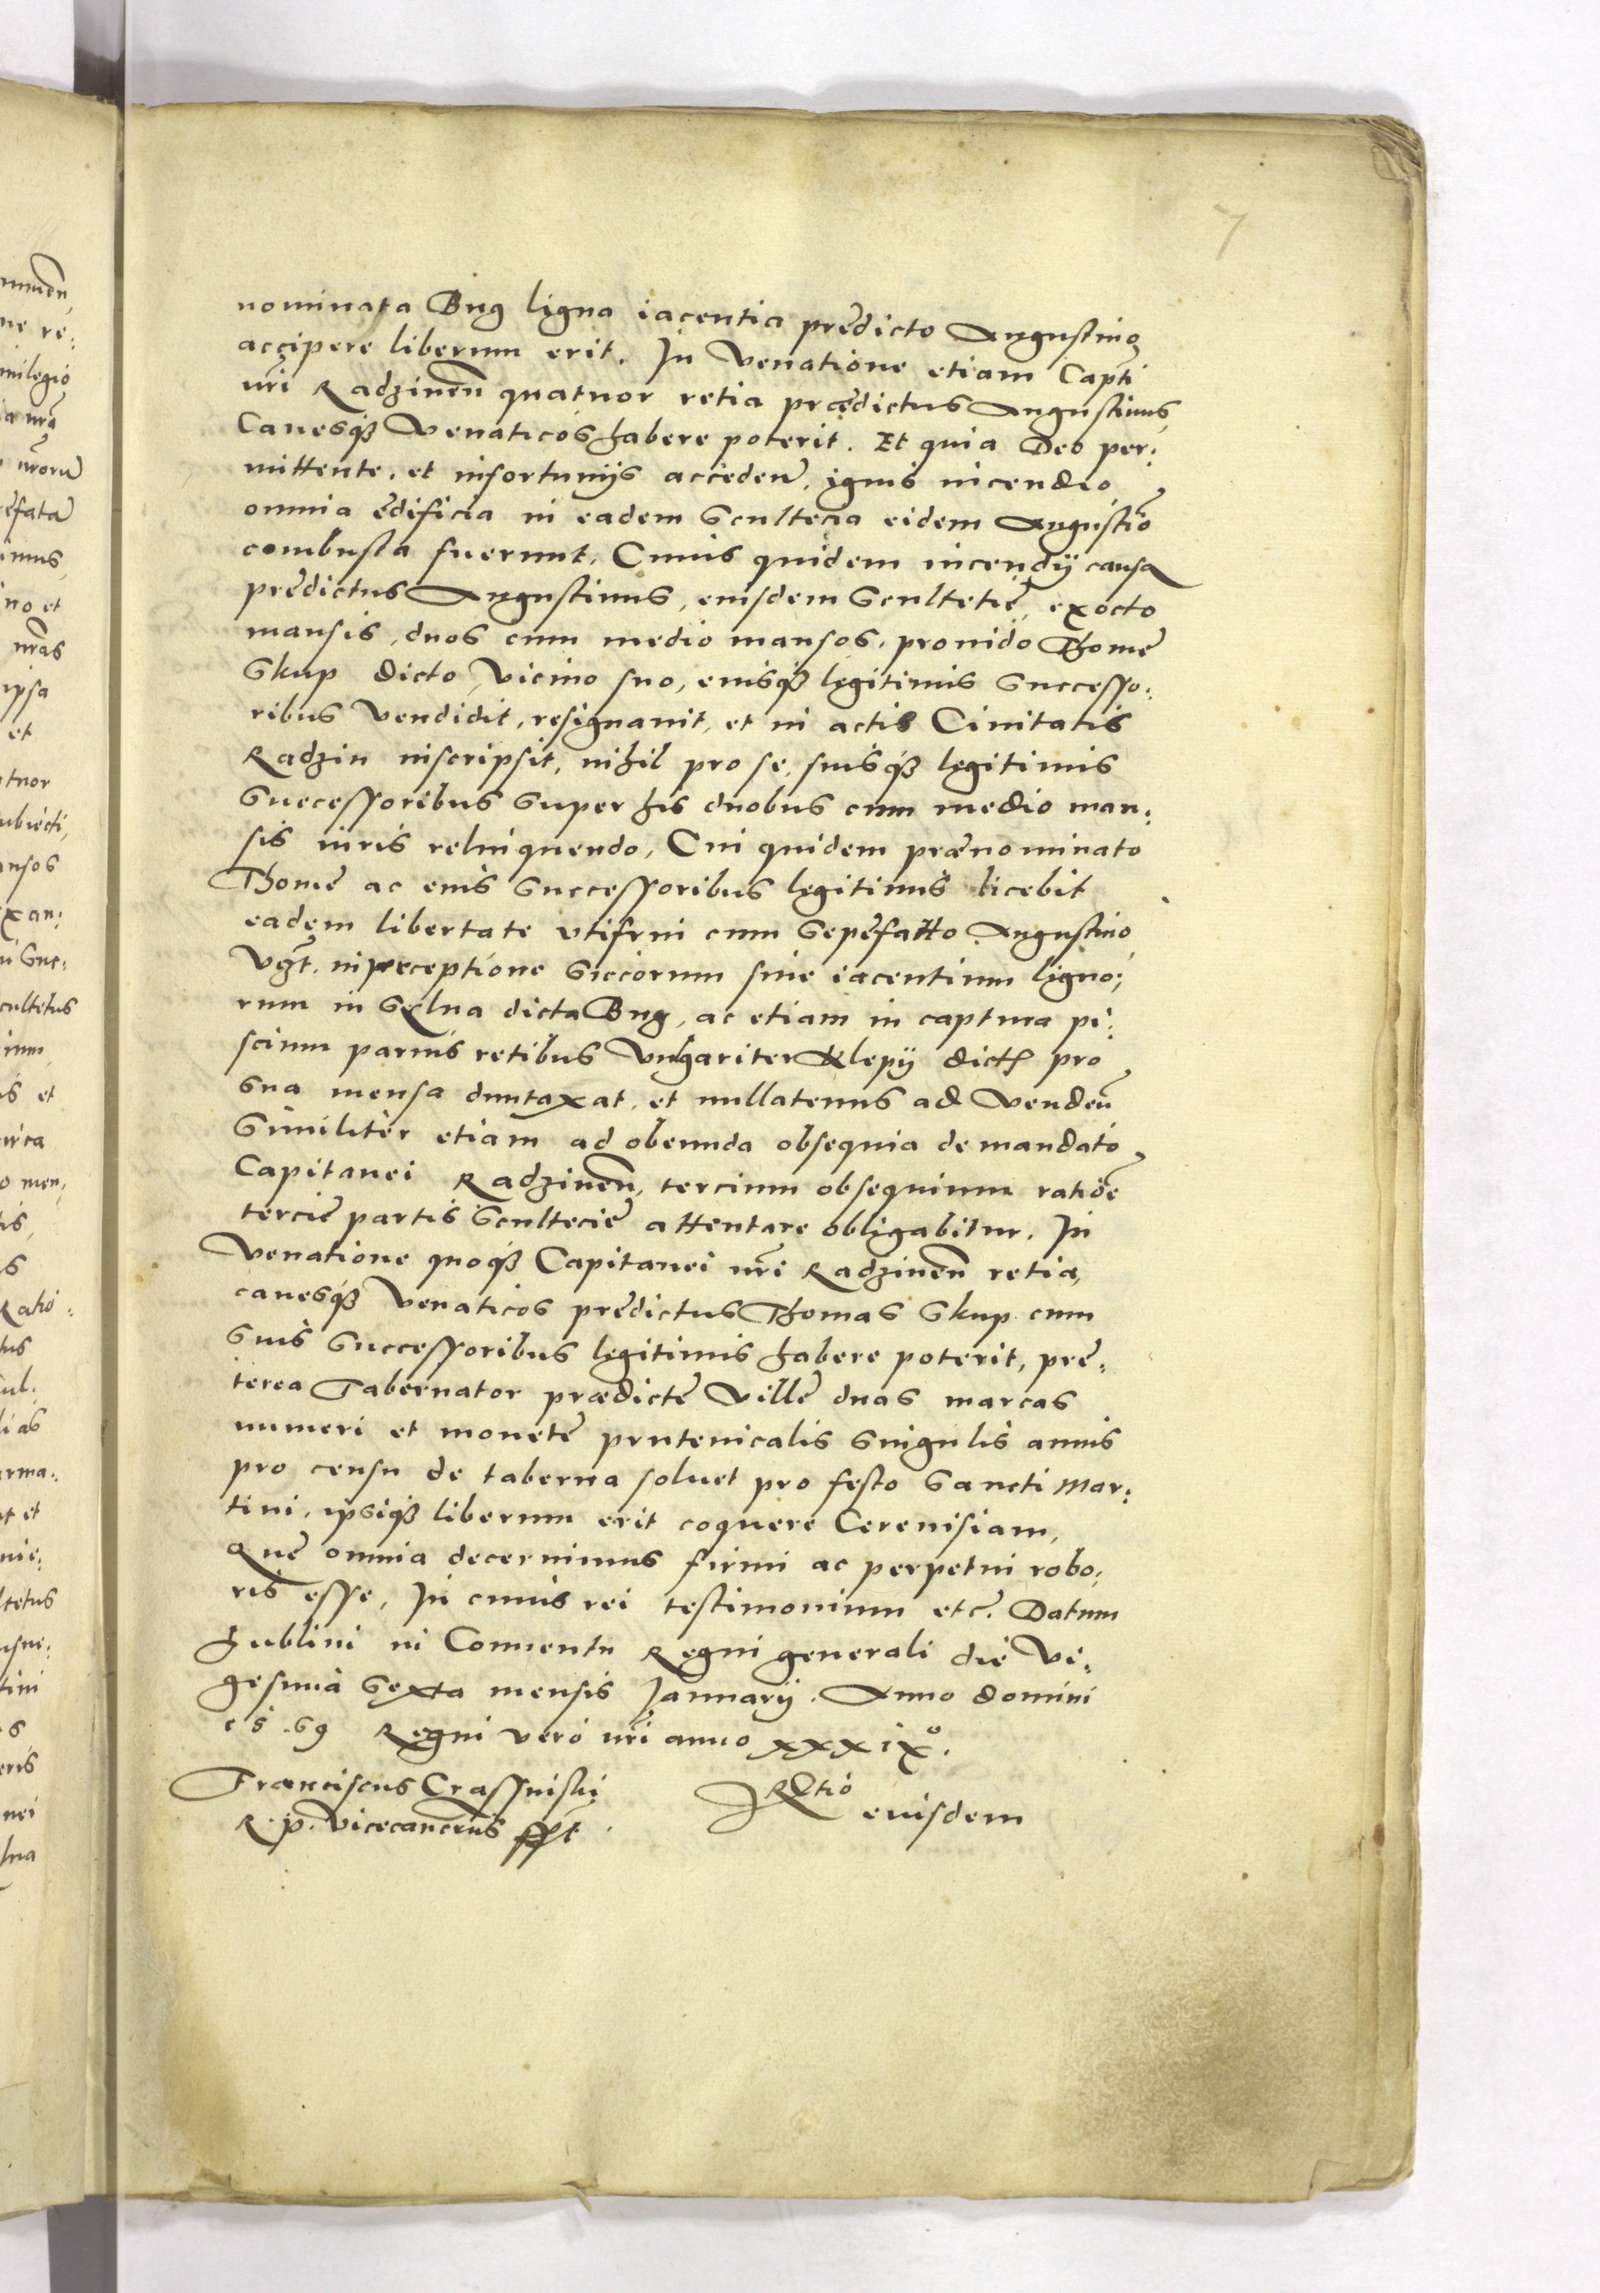 7
nominata Bug ligna iacentia prędicto Augustino
accipere liberum erit. In venatione etiam Capti
nr̃i Radzineñ quatuor retia prædictus Augustinus,
Canesq́ȝ venaticos habere poterit. Et quia Deo per:
mittente, et infortunijs acceden̄, ignis incendio
omnia ędificia in eadem Scultecia eidem Augustĩo
combusta fuerunt, Cuius quidem incendij causa
prędictus Augustinus, eiusdem Scultetię, ex octo
mansis, duos cum medio mansos, prouido Thomę
Skup dicto, vicino suo, eiusq́ȝ legitimis Successo:
ribus vendidit, resignauit, et in actis Ciuitatis
Radzin inscripsit, nihil pro se, suisq́ȝ legitimis
Successoribus super his duobus cum medio man:
sis iuris relinquendo, Cui quidem prænominato
Thomę ac eius Successoribus legitimis licebit
eadem libertate vtifrui cum sepefatto Augustino
vgt. in perceptione siccorum siue iacentium ligno:
rum in Sylua dicta Bug, ac etiam in captura pi:
scium paruis retibus vulgariter Klepij dict pro
sua mensa duntaxat, et nullatenus ad venden̄
Similiter etiam ad obeunda obsequia de mandato
Capitanei Radzineñ, tercium obsequium ratiõe
tercię partis Scultecię attentare obligabitur. In
venatione quoq́ȝ Capitanei nr̃i Radzineñ retia,
canesq́ȝ venaticos prędictus Thomas Skup cum
suis Successoribus legitimis habere poterit, prę:
terea Tabernator prædictę villę duas marcas
numeri et monetę prutenicalis singulis annis
pro censu de taberna soluet pro festo Sancti Mar:
tini, ipsiq́ȝ liberum erit coquere Cereuisiam,
Quę omnia decernimus firmi ac perpetui robo:
ris esse, In cuius rei testimonium etc̃. Datum
Lublini in Conuentu Regni generali die vi:
gesima Sexta mensis Januarij. Anno domini
1569 Regni vero nr̃i anno xxxix°.
Franciscus Crassinski
R. p. vicecancrius sspt
Rltio
eiusdem